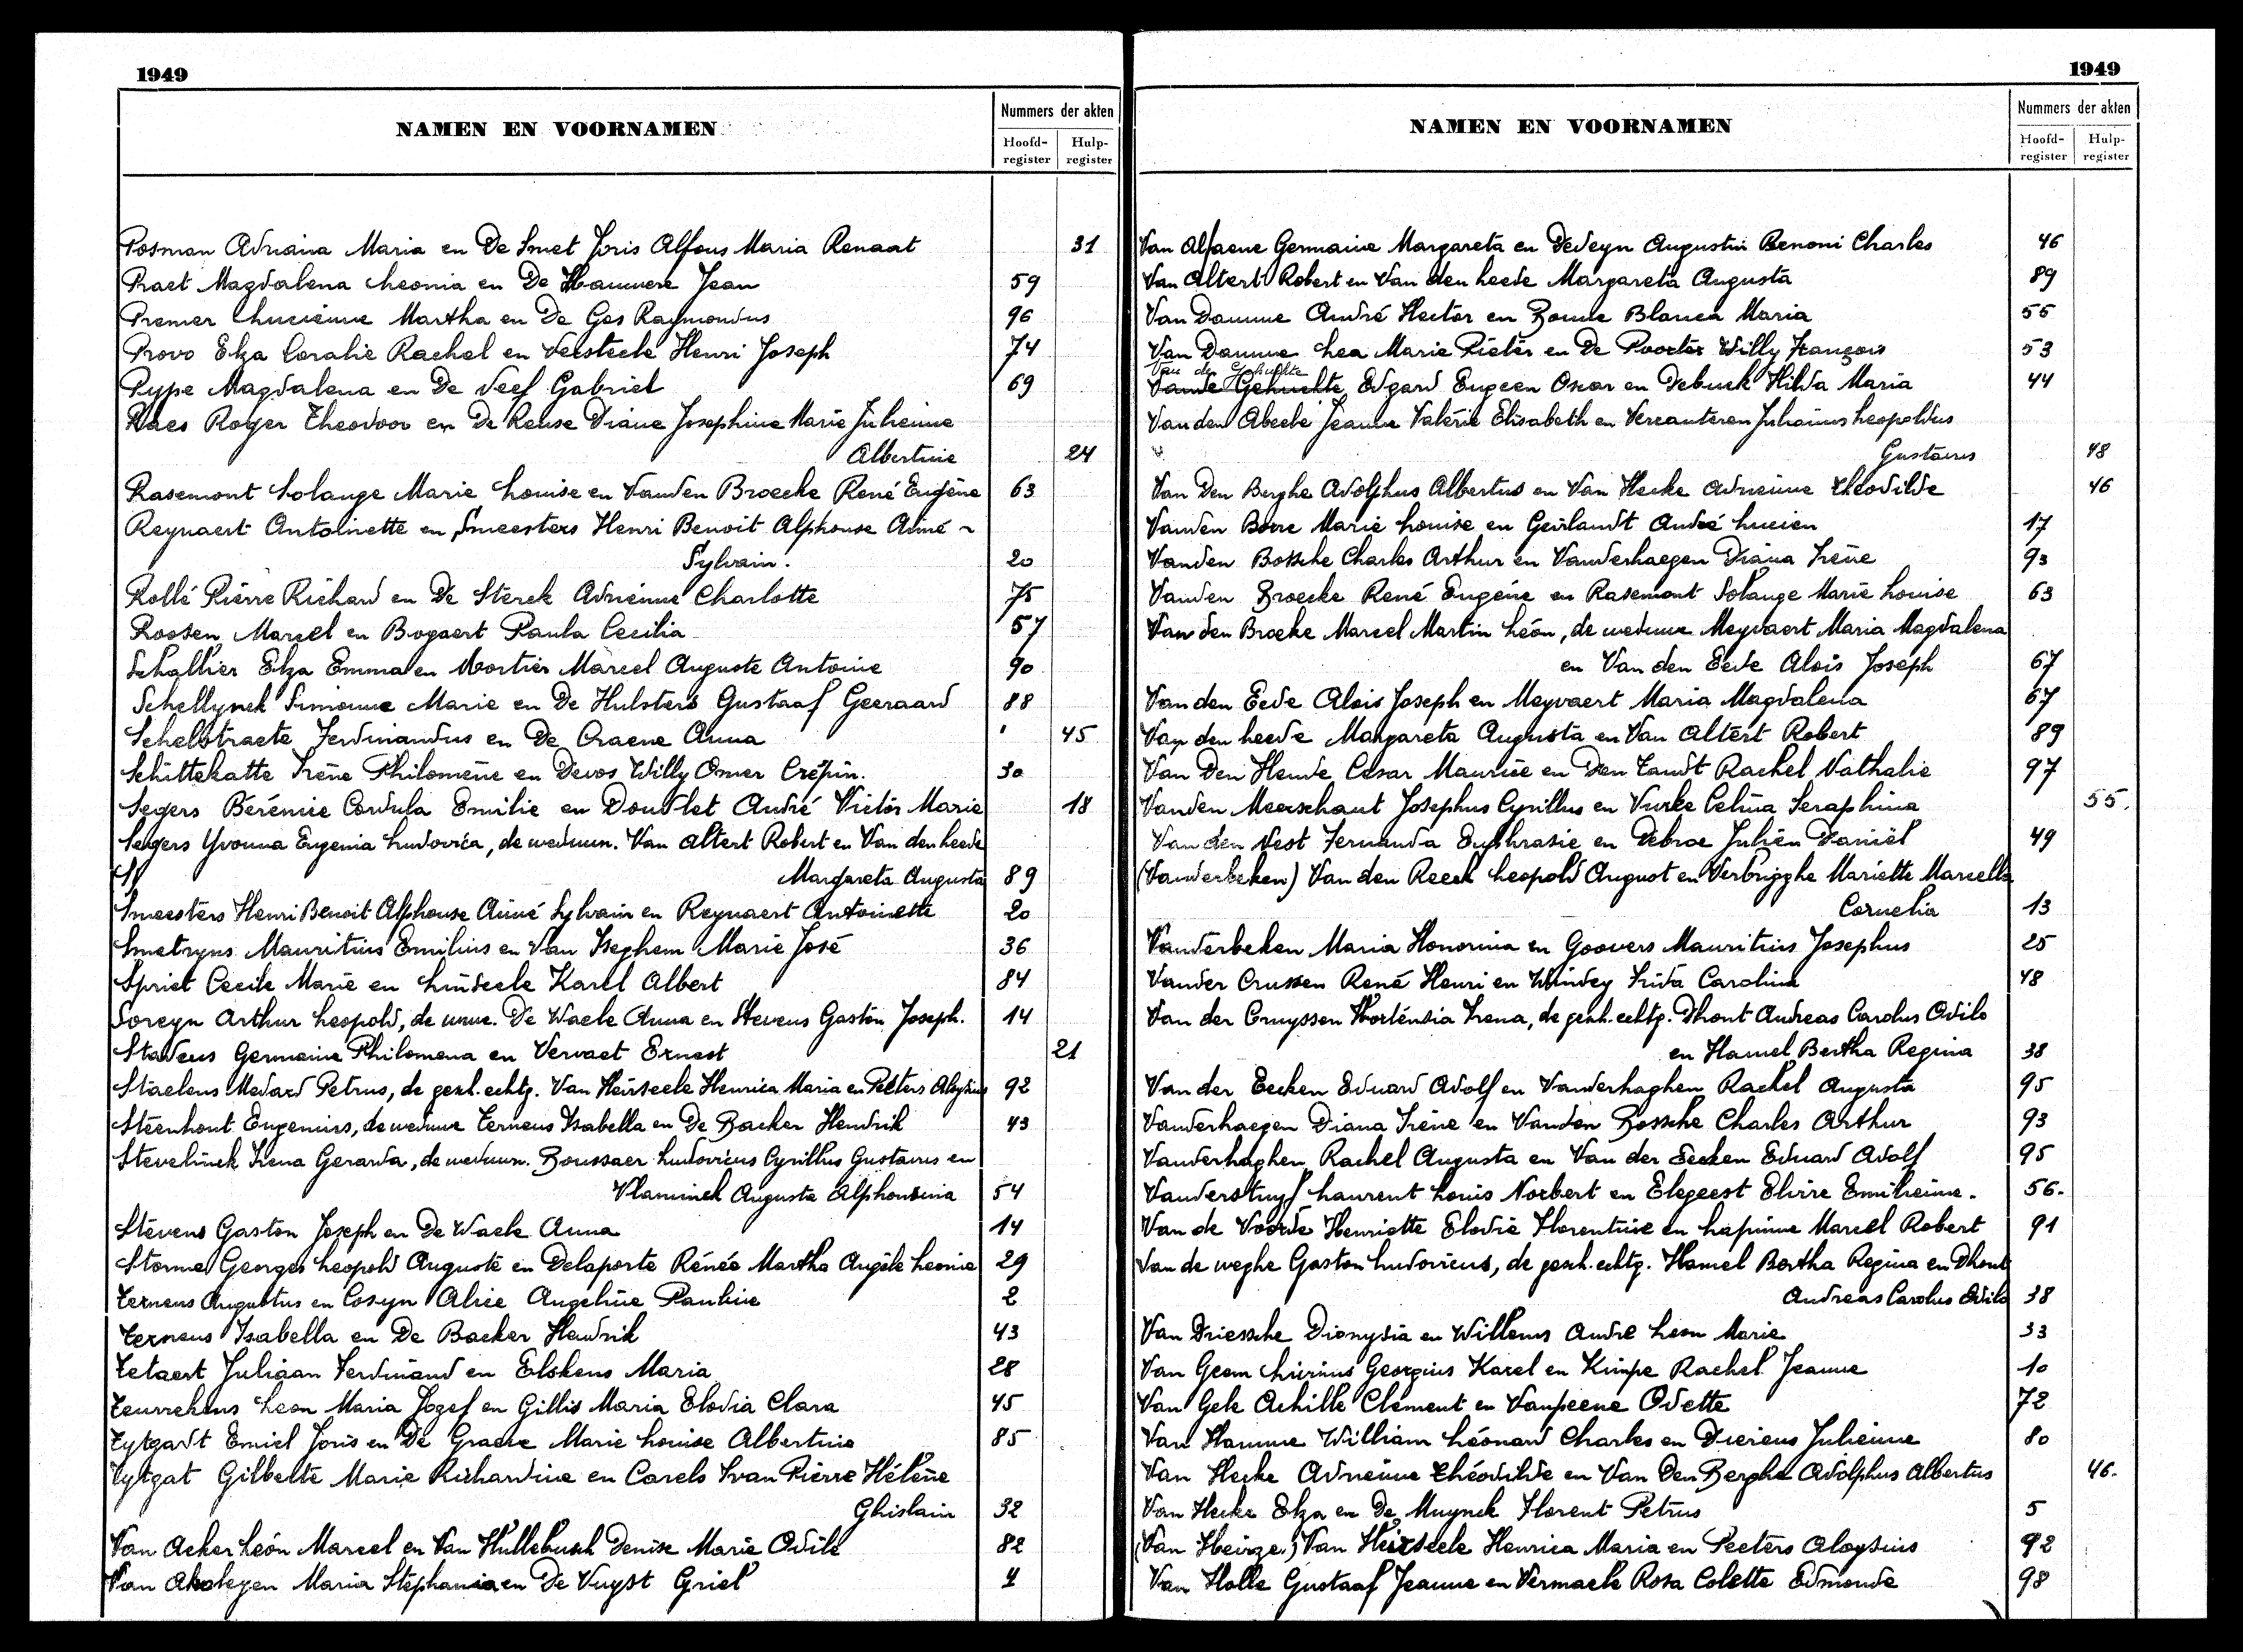 1949
NAMEN EN VOORNAMEN
Nummers der akten
Hoofd-register Hulp-register
Posman Adriana Maria en De Smet Joris Alfons Maria Renaat 31
Praet Magdalena Leonia en De Hauwere Jean 59
Premer Lucienne Martha en De Gos Raymondus 96
Provo Elza Coralie Rachel en Versteele Henri Joseph 74
Pype Magdalena en De Neef Gabriel 69
Raes Roger Theodoor en De Reuse Diane Josephine Marie Julienne
Albertine 24
Rasemont Solange Marie Louise en Vanden Broecke René Eugène 63
Reynaert Antoinette en Smeesters Henri Benoit Alphonse Aimé -
Sylvain. 20
Rollé Pierre Richard en De Sterck Adrienne Charlotte 75
Roosen Marcel en Bogaert Paula Cecilia 57
Schallier Elza Emma en Mortier Marcel Auguste Antoine 90
Schellynck Simonne Marie en De Hulsters Gustaaf Geeraard 88
Schelstraete Ferdinandus en De Craene Anna 45
Schittekatte Irène Philomène en Devos Willy Omer Crépin. 30
Segers Bérénice Cordula Emilie en Doutlet André Victor Marie 18
Segers Yvonna Eugenia Ludovica, de weduwn. Van Altert Robert en Van den heede
Margareta Augusta 89
Smeesters Henri Benoit Alphonse Aimé Sylvain en Reynaert Antoinette 20
Smetryns Mauritius Emilius en Van Iseghem Marie José 36
Spriet Cecile Marie en Lindeele Karel Albert 84
Soreyn Arthur Leopold, de wwe. De Waele Anna en Stevens Gaston Joseph. 14
Stadeus Germaine Philomena en Vervaet Ernest 21
Staelens Medard Petrus, de gesch. echtg. Van Heirseele Henrica Maria en Peeters Aloysius 92
Steenhout Eugenius, de weduwe Terneus Isabella en De Backer Hendrik 43
Stevelinck Irena Gerarda, de weduwn. Boussaer Ludovicus Cyrillus Gustavus en
Vlaminck Augusta Alphonsina 54
Stevens Gaston Joseph en De Waele Anna 14
Storme Georges Leopold Auguste en Delaporte Rénée Martha Angèle Leonie 29
Terneus Augustus en Cosyn Alice Angeline Pauline 2
Terneus Isabella en De Backer Hendrik 43
Tetaert Juliaan Ferdinand en Elskens Maria 28
Teurrekens Leon Maria Jozef en Gillis Maria Elodia Clara 45
Tytgadt Emiel Joris en De Graeve Marie Louise Albertine 85
Tytgat Gilberte Marie Richardine en Carels Ivan Pierre Hélène
Ghislain 32
Van Acker Léon Marcel en Van Hullebusch Denise Marie Odile 82
Van Maria Stephania en De Vuyst Griel 4
1949
NAMEN EN VOORNAMEN
Nummers der akten
Hoofd-register Hulp-register
Van Alfaene Germaine Margareta en Dedeyn Augustin Benoni Charles 46
Van Altert Robert en Van den heede Margareta Augusta 89
Van Damme André Hector en Bonne Blanca Maria 55
Van Damme Lea Marie Pieter en De Poorter Willy François 53
Van der Gehuchte
Vande Gehuchte Edgard Eugeen Oscar en Debuck Hilda Maria 44
Van den Abeele Jeanne Valérie Elisabeth en Vercauteren Julianus Leopoldus
Gustavus 48
Van Den Berghe Adolphus Albertus en Van Hecke Adrienne Théodilde 46
Vanden Borre Marie Louise en Geirlandt André Lucien 17
Vanden Bossche Charles Arthur en Vanderhaegen Diana Irène 93
Vanden Broecke René Eugène en Rasemont Solange Marie Louise 63
Van den Broeke Marcel Martin Léon, de weduwe Meyvaert Maria Magdalena
en Van den Eede Alois Joseph 67
Van den Eede Alois Joseph en Meyvaert Maria Magdalena 67
Van den heede Margareta Augusta en Van Altert Robert 89
Van Den Hende Cesar Maurice en Den Tandt Rachel Nathalie 97
Vanden Meerschaut Josephus Cyrillus en Vurke Celina Seraphina 55.
Van den Nest Fernanda Euphrasie en Debroe Julien Daniël 49
(Vanderbeken) Van den Reeck Leopold August en Verbrigghe Mariette Marcella
Cornelia 13
Vanderbeken Maria Honorina en Goovers Mauritius Josephus 25
Vander Crussen René Henri en Windey Frida Carolina 48
Van der Cruyssen Hortensia Irena, de gesch. echtg. Dhont Andreas Carolus Odilo
en Hamel Bertha Regina 38
Van der Eecken Eduard Adolf en Vanderhaghen Rachel Augusta 95
Vanderhaegen Diana Irène en Vanden Bossche Charles Arthur 93
Vanderhaghen Rachel Augusta en Van der Eecken Eduard Adolf 95
Vanderstuyf Laurent Louis Norbert en Elegeest Elvire Emilienne. 56.
Van de Voorde Henriette Elodie Florentine en Lapinne Marcel Robert 91
Van de weghe Gaston Ludovicus, de gesch. echtg. Hamel Bertha Regina en Dhont
Andreas Carolus Odilo 38
Van Driessche Dionysia en Willems André Leon Marie 33
Van Geem Livinus Georgius Karel en Kimpe Rachel Jeanne 10
Van Gele Achille Clément en Vanpeene Odette 72
Van Hamme William Léonard Charles en Diericus Julienne 80
Van Hecke Adrienne Théodilde en Van Den Berghe Adolphus Albertus 46.
Van Hecke Elza en De Muynck Florent Petrus 5
(Van Heirze.) Van Heirseele Henrica Maria en Peeters Aloysius 92
Van Holle Gustaaf Jeanne en Vermaele Rosa Colette Edmonde 98